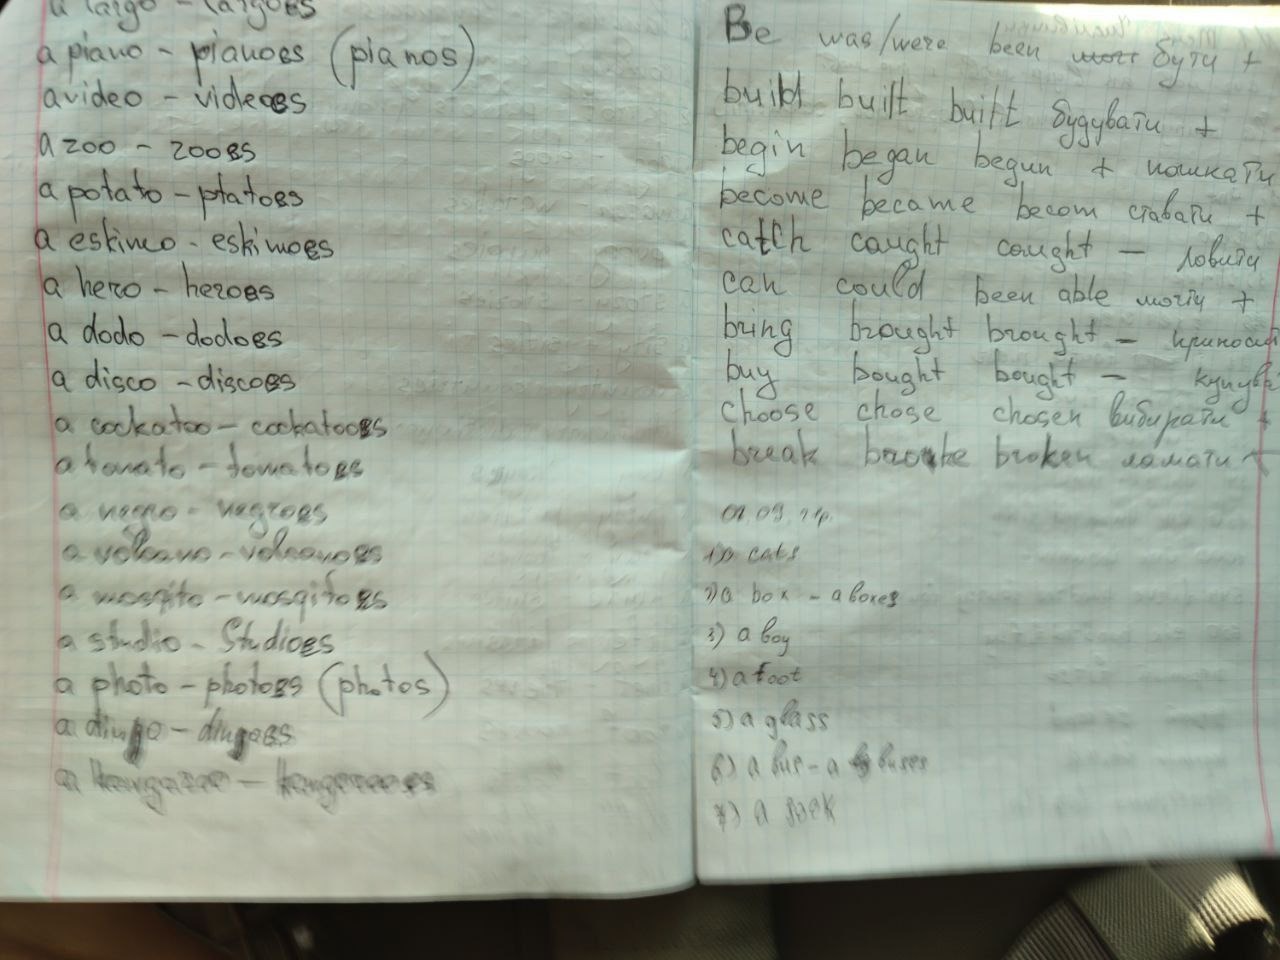 a piano - pianoes (pianos)
a video - videoes
a zoo - zooes
a potato - ptatoes
a eskimo - eskimoes
a hero - heroes
a dodo - dodoes
a disco - discoes
a cockatoo - cockatooes
a tomato - tomatoes
a negro - negroes
a volcano - volcanoes
a mosqito - mosqitoes
a studio - Studioes
a photo - photoes (photos)
a dingo - dingoes
Be was/were been бути +
build built built будувати +
begin began begun +
become became becom ставати +
catch caught caught - ловити
can could been able могти +
bring brought brought -
buy bought bought -
choose chose chosen вибирати +
break broke broken ламати +
cats
2) a box - a boxes
3) a boy
4) a foot
5) a glass
6) a bus - a buses
7) a